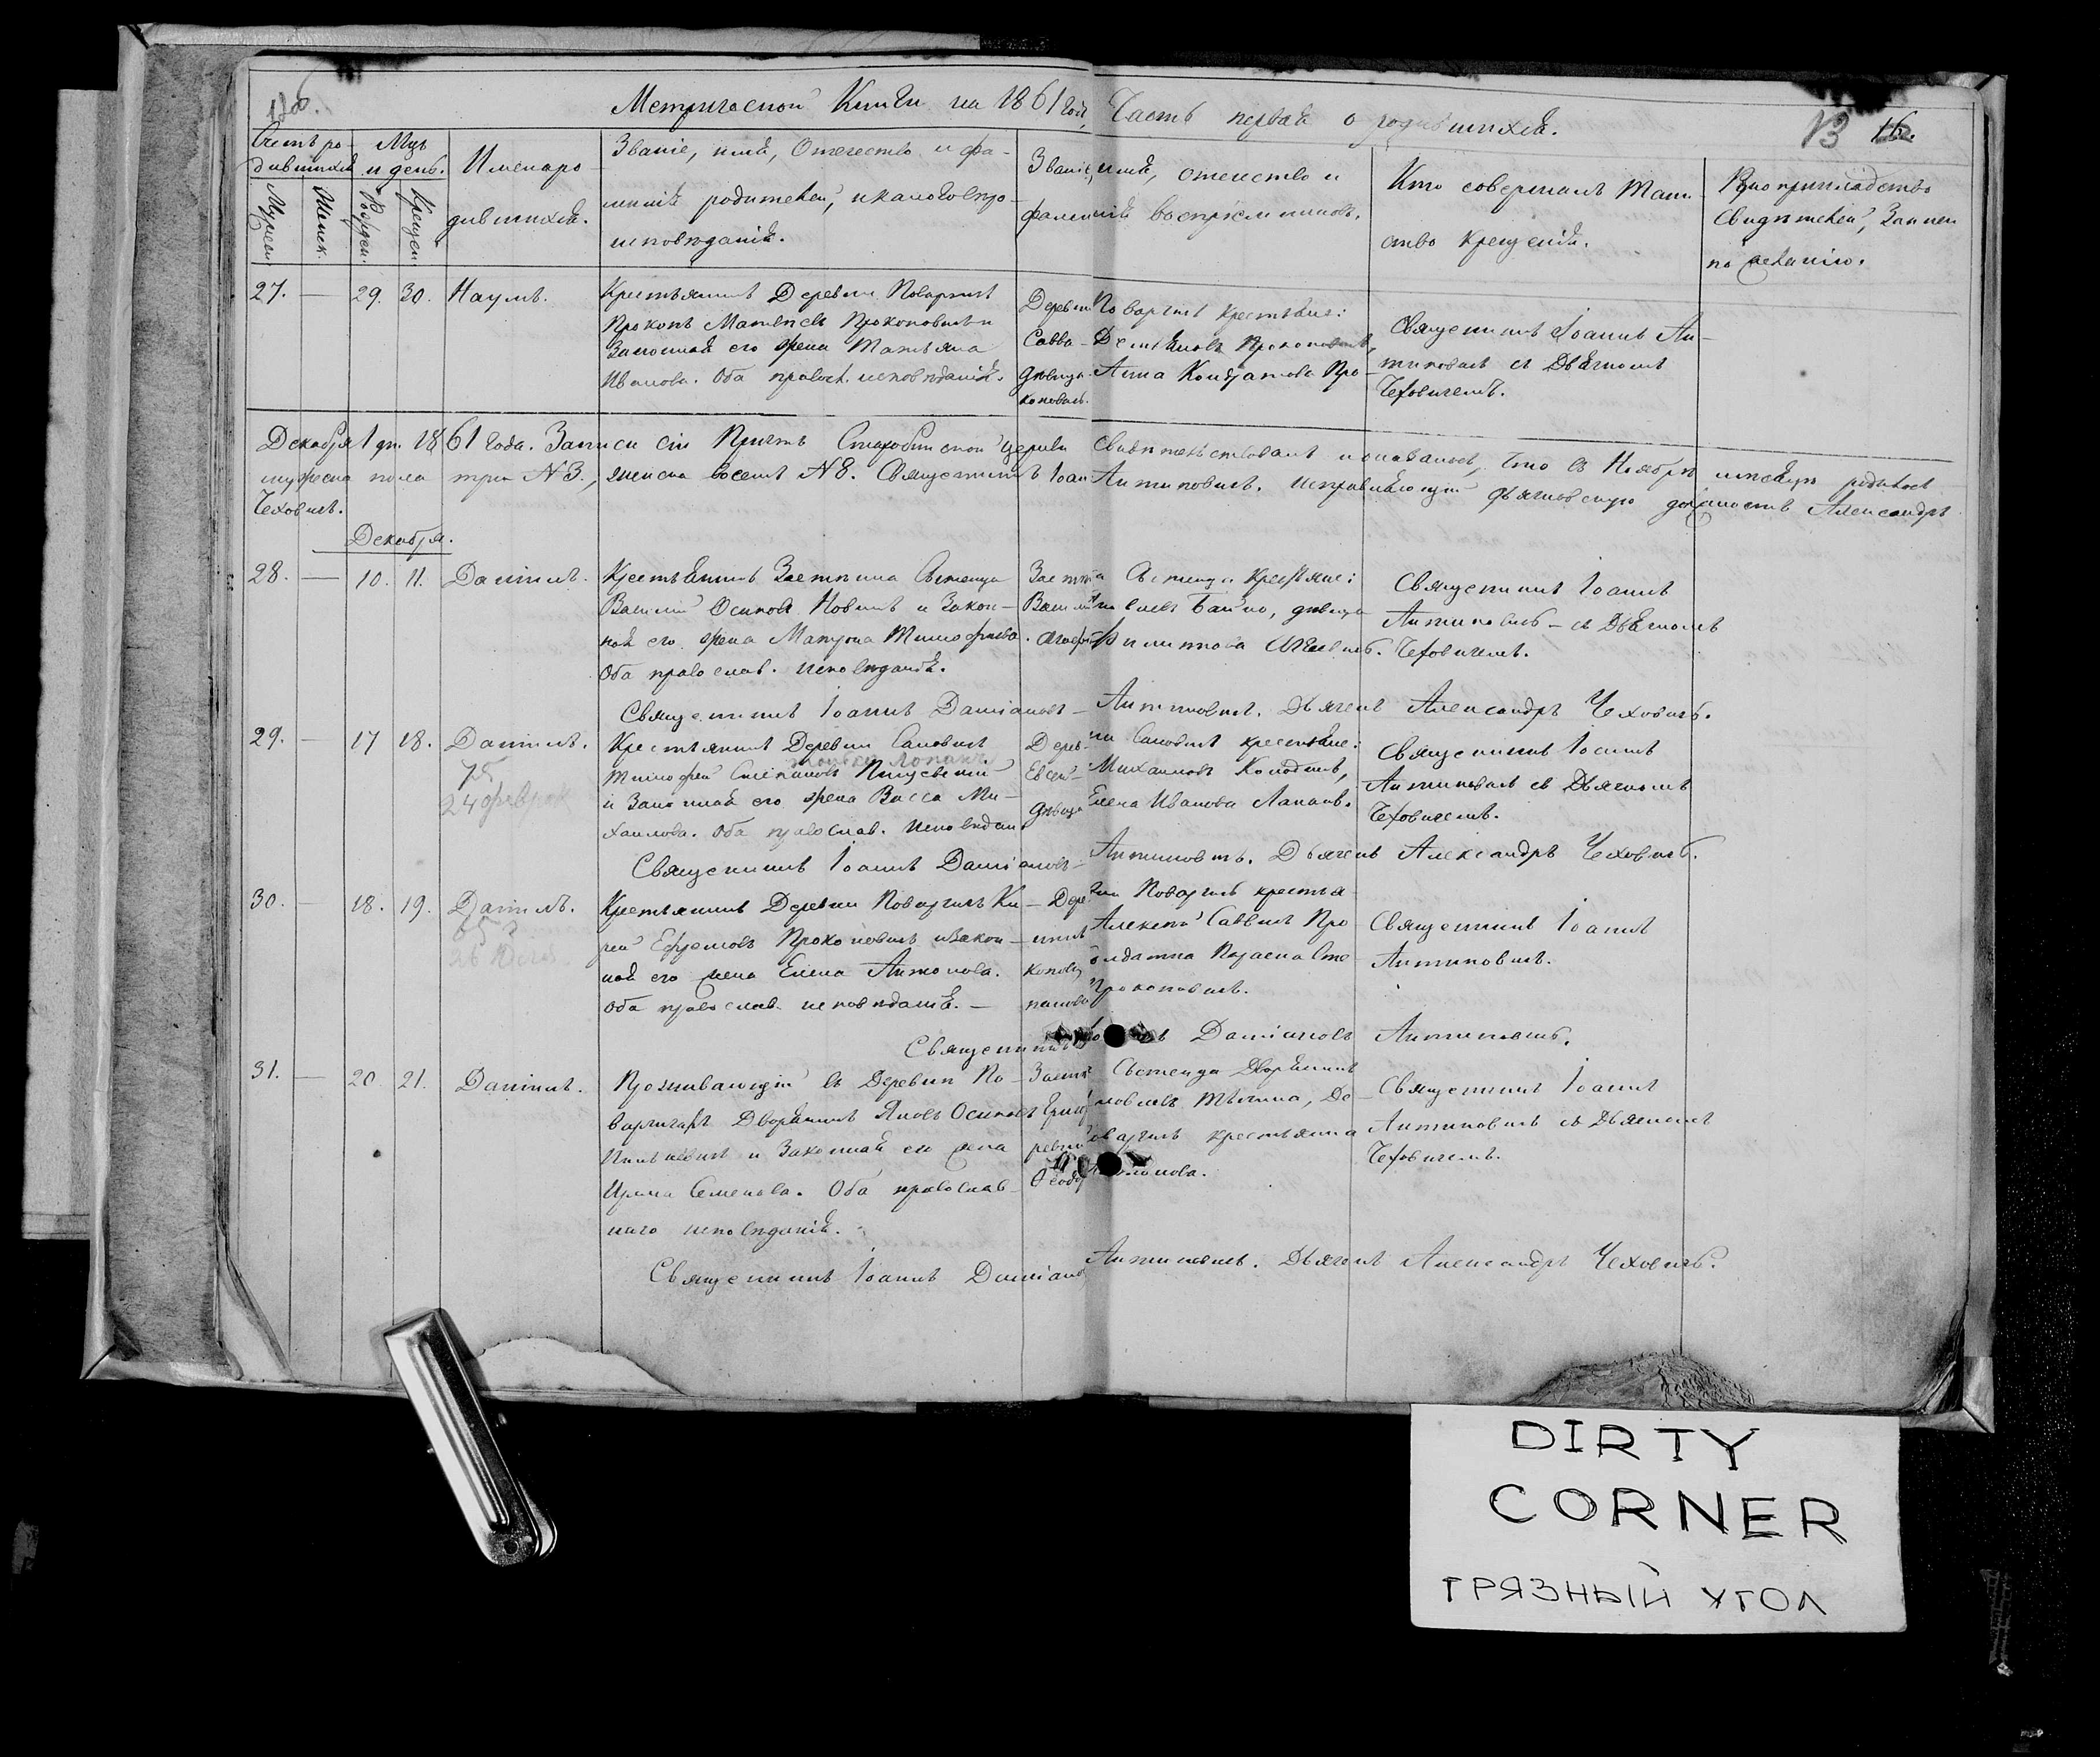 Метрической Книги на 1861 годъ, Часть первая о родившихся.
13 16.
Счетъ ро-
дившихся
Мужеск.
Женск.
Мцъ
и день.
Рожден.
Крещен.
Имена ро-
дившихся.
Званіе, имя, Отечество и фа-
милія родителей, и какого вѣро-
исповѣданія.
Званіе, имя, отечество и
фамилія воспріемниковъ.
Кто совершалъ Таин-
ство Крещенія.
Рукоприкладство
Свидѣтелей, записи
по желанію.
27. — 29. 30. Наумъ.
Крестьянинъ Деревни Поварчицъ
Прокопъ Матвѣевъ Прокоповичъ и
Законная его жена Татьяна
Иванова. Оба правосл. исповѣданія.
Деревни Поварчицъ Крестьяне:
Савва Демьяновъ Прокоповичъ,
дѣвица Анна Кондратова Про-
коповичъ.
Священникъ Іоаннъ Ан-
типовичъ съ Дьячкомъ
Чеховичемъ.
Декабря 1 дн. 1861 года. Записи сіи Причтъ Старобинской церкви свидѣтельствовалъ и оказалось, что въ Ноябрѣ мѣсяцѣ родилось
мужеска пола три N 3., женска восемь N 8. Священникъ Іоан Антиповичъ. Исправляющій дьячковскую должность Александръ
Чеховичъ.
Декабря.
28. — 10. 11. Даніилъ.
Крестьянинъ Застѣнка
Василій Осиповъ Новикъ и Закон-
ная его жена Матрона Тимофеева.
Оба православ. исповѣданія.
крестьяне:
Байко, дѣвица
Агафія Филиппова
Священникъ Іоаннъ
Антиповичъ — съ Дьячкомъ
Чеховичемъ.
Священникъ Іоаннъ Даміановъ Антиповичъ. Дьячекъ Александръ Чеховичъ.
29. — 17 18. Даніилъ.
75
24 феврал
Крестьянинъ Деревни Сановичъ
Тимофей Степановъ
и Законная его жена Васса Ми-
хаилова. Оба православ. исповѣдан.
Деревни Сановичъ крестьяне:
Евсей Михаиловъ Колодичъ,
дѣвица Елена Иванова Лапанъ.
Священникъ Іоаннъ
Антиповичъ съ Дьячкомъ
Чеховичемъ.
Священникъ Іоаннъ Даміановъ Антиповичъ. Дьячекъ Александръ Чеховичъ.
30. — 18. 19. Даніилъ.
Крестьянинъ Деревни Поварчицъ Ки-
рей Ефремовъ Прокоповичъ и Закон-
ная его жена Елена Антонова.
Оба православ. исповѣданія. —
Деревни Поварчицъ крестья-
нинъ Алексѣй Саввичъ Про-
коповичъ, солдатка Параска Сте-
панова Прокоповичъ.
Священникъ Іоаннъ
Антиповичъ.
Священникъ Даміановъ Антиповичъ.
31. — 20 21. Даніилъ.
Проживающій въ Деревни По-
варчичахъ Дворянинъ Яковъ Осиповъ
и Законная его жена
Ирина Семенова. Оба православ-
наго исповѣданія.
Дворянинъ
Де-
ревни Поварчицъ крестьянка
Священникъ Іоаннъ
Антиповичъ съ Дьячкомъ
Чеховичемъ.
Священникъ Іоаннъ Даміановъ Антиповичъ. Дьячекъ Александръ Чеховичъ.
DIRTY
CORNER
ГРЯЗНЫЙ УГОЛ